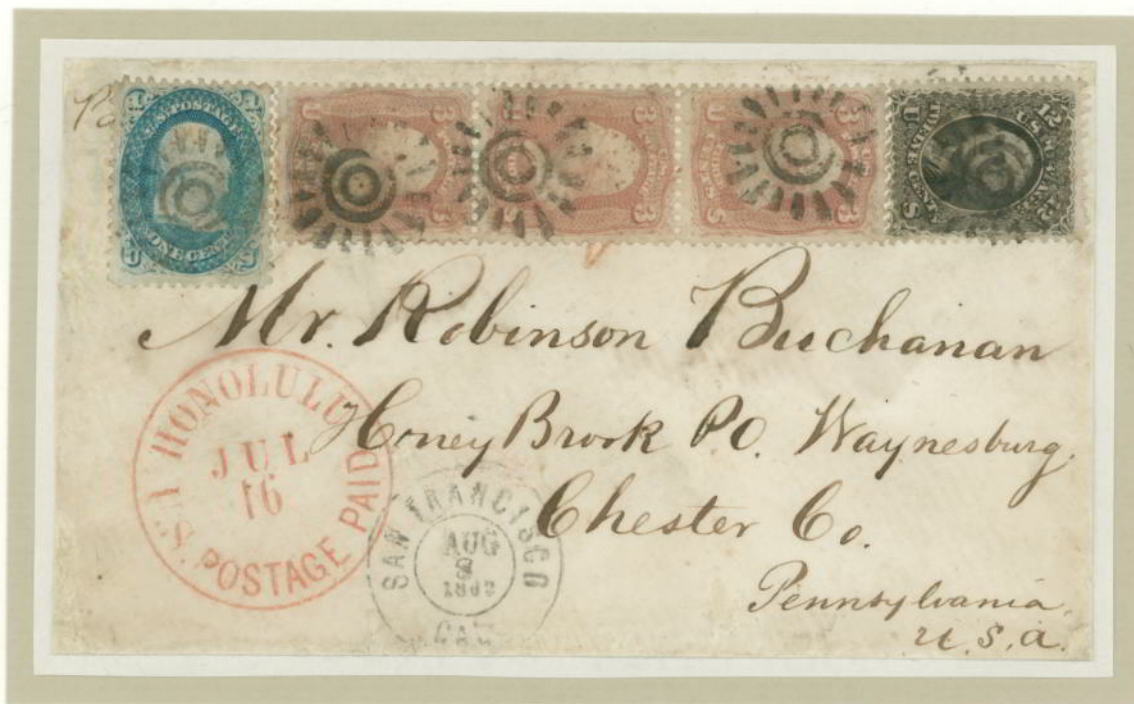 U.S. POSTAGE
ONE CENT
3 3 3
U S
12 12
TWELVE CENTS
U S
Mr. Robinson Buchanan
Honey Brook P.O. Waynesburg.
Chester Co.
Pennsylvania.
U.S.A.
HONOLULU
JUL
16
U.S. POSTAGE PAID
SAN FRANCISCO
AUG
CAL